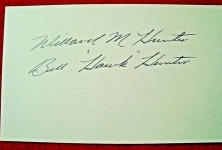 Willard M Hunter
Bill "Hawk" Hunter